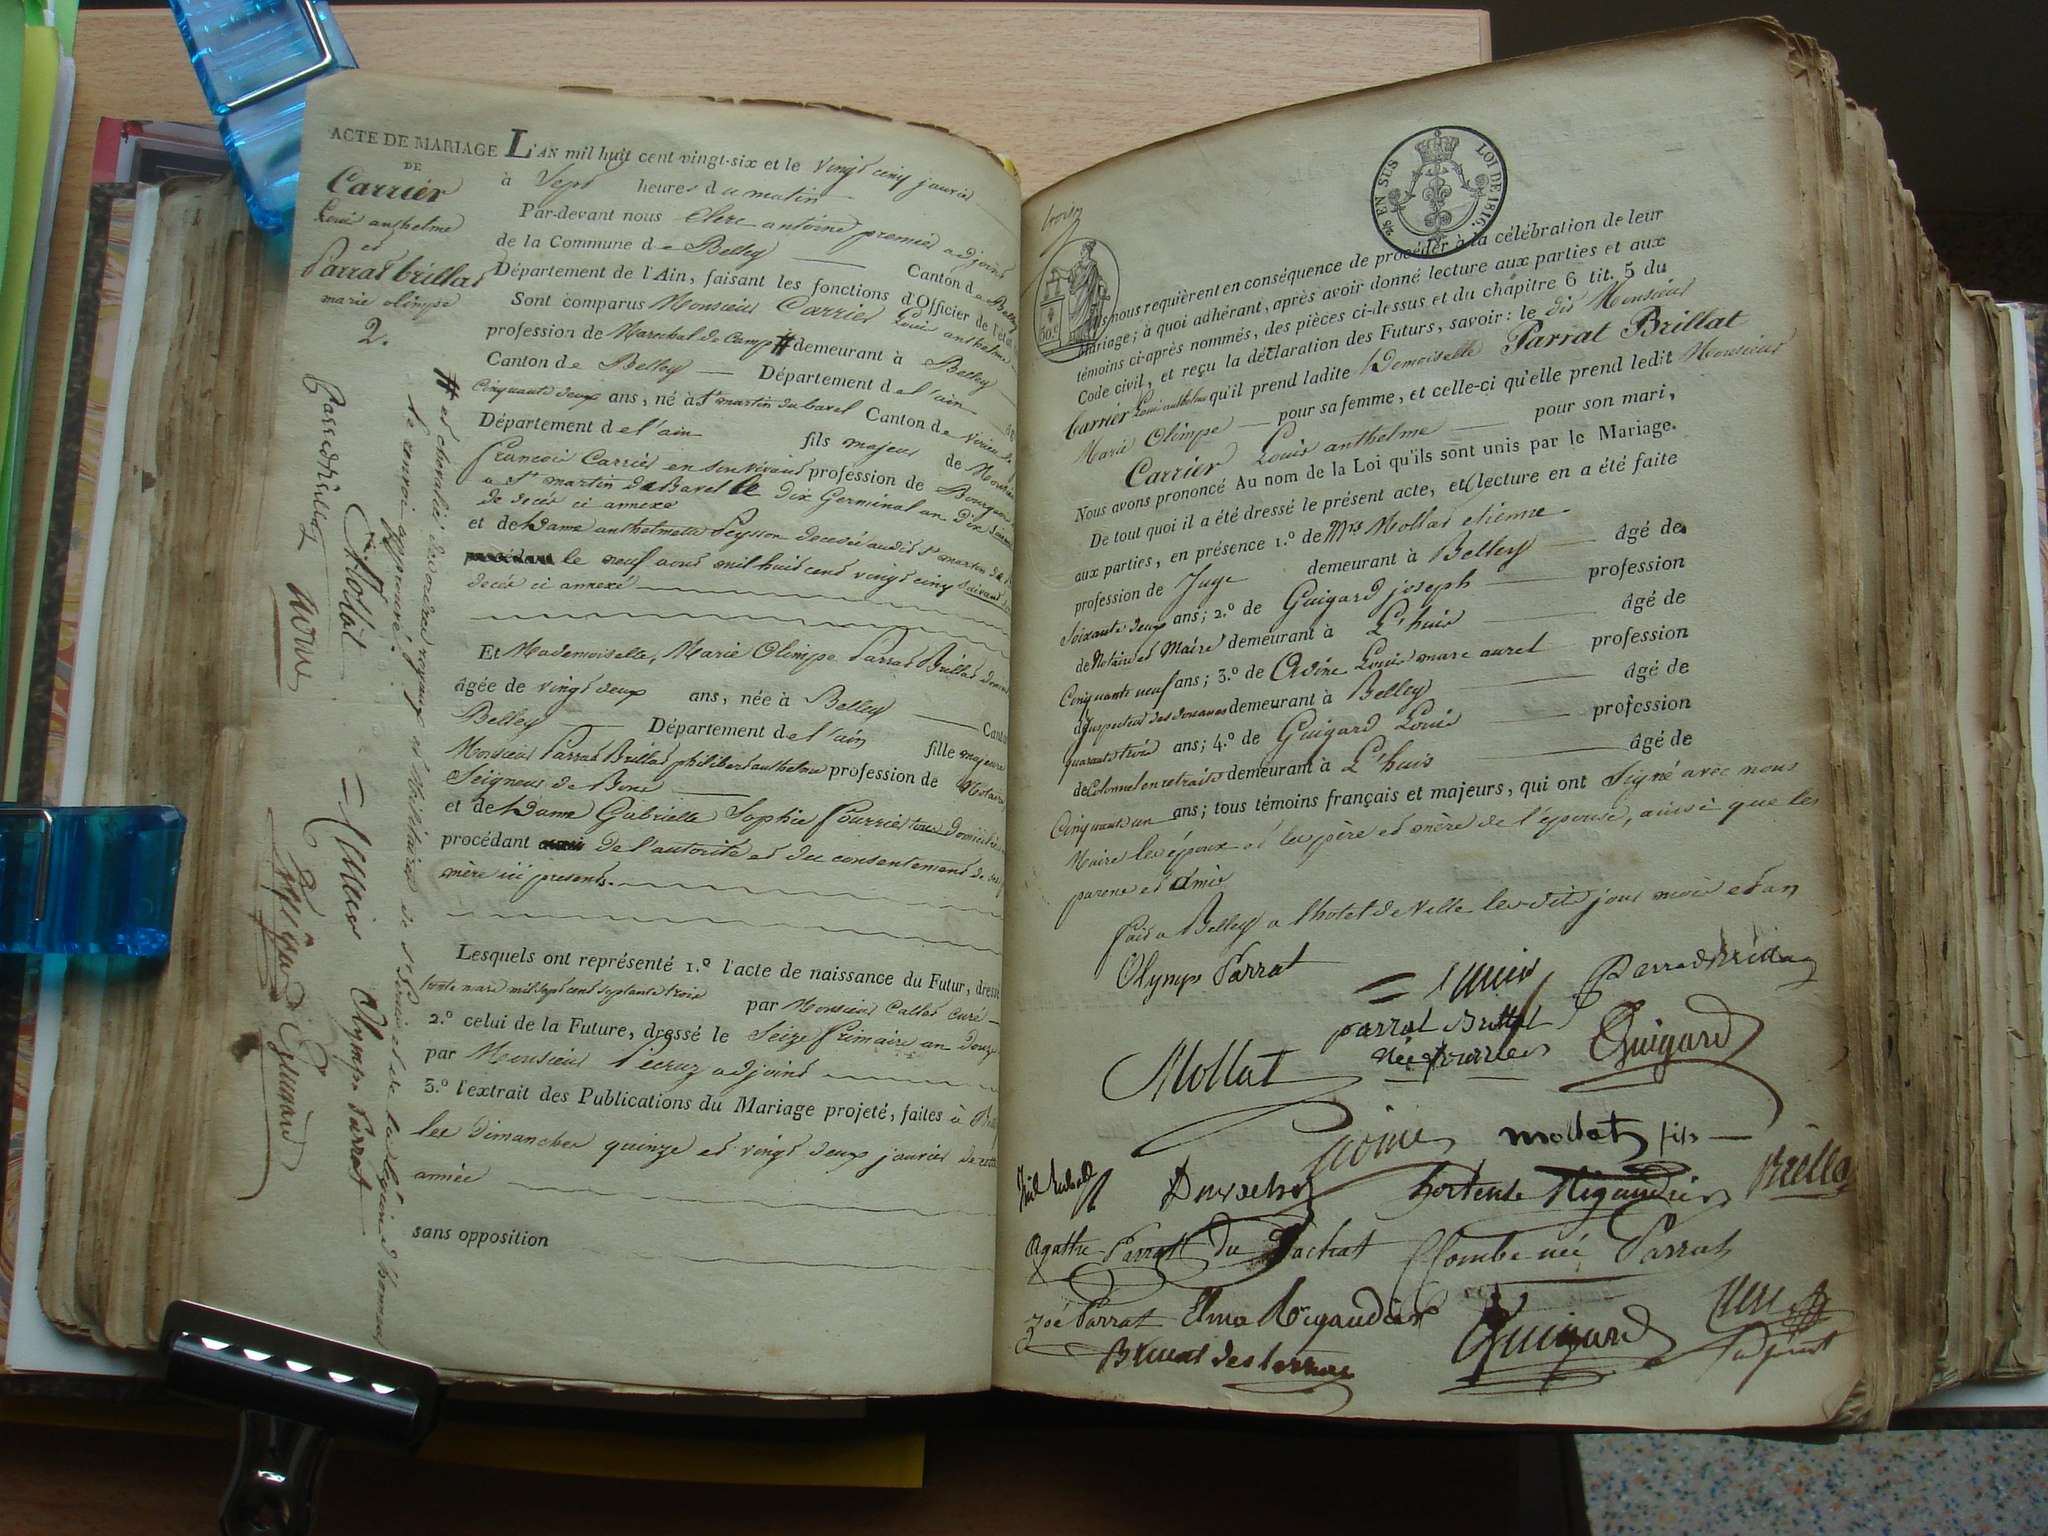 ACTE DE MARIAGE
DE
Carrier
Louis anthelme
et
Parrat brillat
marie olimpe
2.
L'AN mil huit cent vingt-six et le vingt cinq janvier
à Sept heures du matin
Par-devant nous Clerc antoine premier adjoint
de la Commune de Belley Canton de Belley
Département de l'Ain, faisant les fonctions d'Officier de l'état
Sont comparus Monsieur Carrier Louis anthelme
profession de Maréchal de Camp # demeurant à Belley
Canton de Belley Département de l'ain
Cinquante deux ans, né à St martin du bavel Canton de virieu le
Département de l'ain fils majeur de Monsieur
francois Carrier en son vivant profession de Bourgeois
a St martin de Bavel le dix Germinal an dix
de decès ci annexé
et de Dame anthelmette Peysson decedée audit St martin de
le neuf aout mil huit cent vingt cinq suivant
decès ci annexé
Et Mademoiselle, Marie Olimpe Parrat Brillat
âgée de vingt deux ans, née à Belley Canton
Belley Département de l'ain fille majeure
Monsieur Parrat Brillat philibert anthelme profession de Notaire
Seigneur de Bone
et de Dame Gabrielle Sophie fourrier tous domiciliés
procédant de l'autorité et du consentement de ses
mère ici presents.
Lesquels ont représenté 1.º l'acte de naissance du Futur, dressé
trente mars mil sept cent septante trois par Monsieur Callet curé
2.º celui de la Future, dressé le Seize frimaire an douze
par Monsieur adjoint
3.º l'extrait des Publications du Mariage projeté, faites à
les dimanches quinze et vingt deux janvier de cette
année
sans opposition
# et chevalier des ordres royaux et militaires de St Louis et de la légion d'honneur
le renvoi approuvé.
Parrat Brillat
Mollat
Olympe Parrat
Guigard
Guigard
25 EN SUS
LOI DE 1816.
50 c
nous requièrent en conséquence de procéder à la célébration de leur
mariage; à quoi adhérant, après avoir donné lecture aux parties et aux
témoins ci-après nommés, des pièces ci-dessus et du chapitre 6 tit. 5 du
Code civil, et reçu la déclaration des Futurs, savoir: le dit Monsieur
Carrier Louis anthelme qu'il prend ladite Demoiselle Parrat Brillat
Marie Olimpe pour sa femme, et celle-ci qu'elle prend ledit Monsieur
Carrier Louis anthelme pour son mari,
Nous avons prononcé Au nom de la Loi qu'ils sont unis par le Mariage.
De tout quoi il a été dressé le présent acte, et lecture en a été faite
aux parties, en présence 1.º de Mrs Mollat etienne
profession de Juge demeurant à Belley âgé de
Soixante deux ans; 2.º de Guigard joseph profession
de Notaire et Maire demeurant à L'huis âgé de
Cinquante neuf ans; 3.º de Avoine Louis marc aurel profession
d'inspecteur des douanes demeurant à Belley âgé de
quarante trois ans; 4.º de Guigard Louis profession
de Colonel en retraite demeurant à L'huis âgé de
Cinquante un ans; tous témoins français et majeurs, qui ont Signé avec nous
Maire les époux et les père et mère de l'épouse, ainsi que les
parens et amis
fait a Belley a l'hotel de Ville les dits jour mois et an
Olympe Parrat
Parrat Brillat
parrat Brillat
née fourrier
Mollat
Guigard
mollat fils
hortense Rigaudier
Brillat
Agathe Parrat du Pachat
Colombe née Parrat
Zoé Parrat
Elma Rigaudier
Guigard
Clerc
adjoint